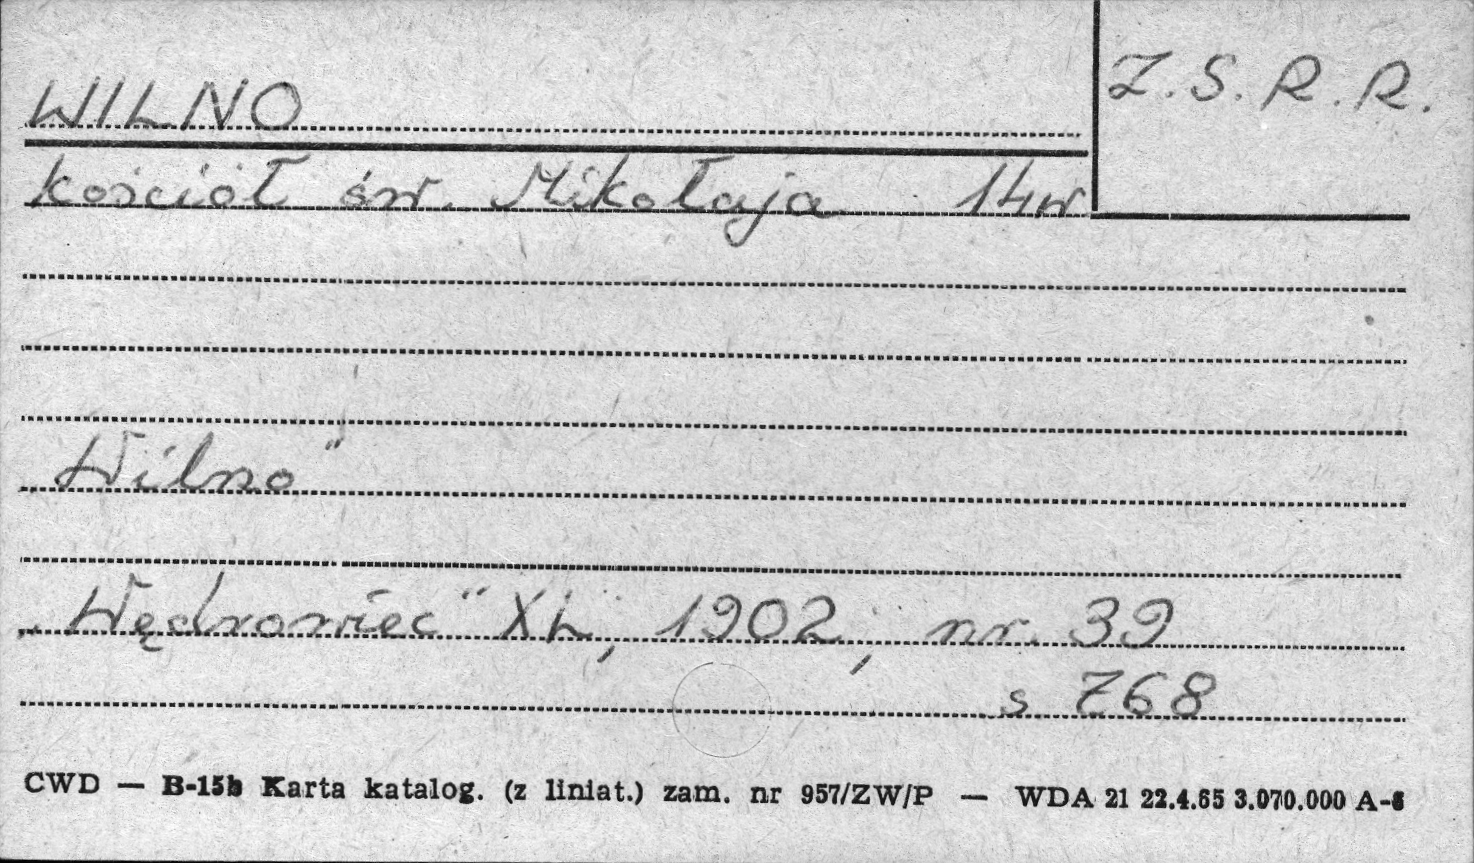 WILNO
Z.S.R.R.
kościół św. Mikołaja 14w
"Wilno"
„Wędrowiec" XL, 1902, nr. 39
s 768
CWD — B-15b Karta katalog. (z liniat.) zam. nr 957/ZW/P — WDA 21 22.4.65 3.070.000 A-6